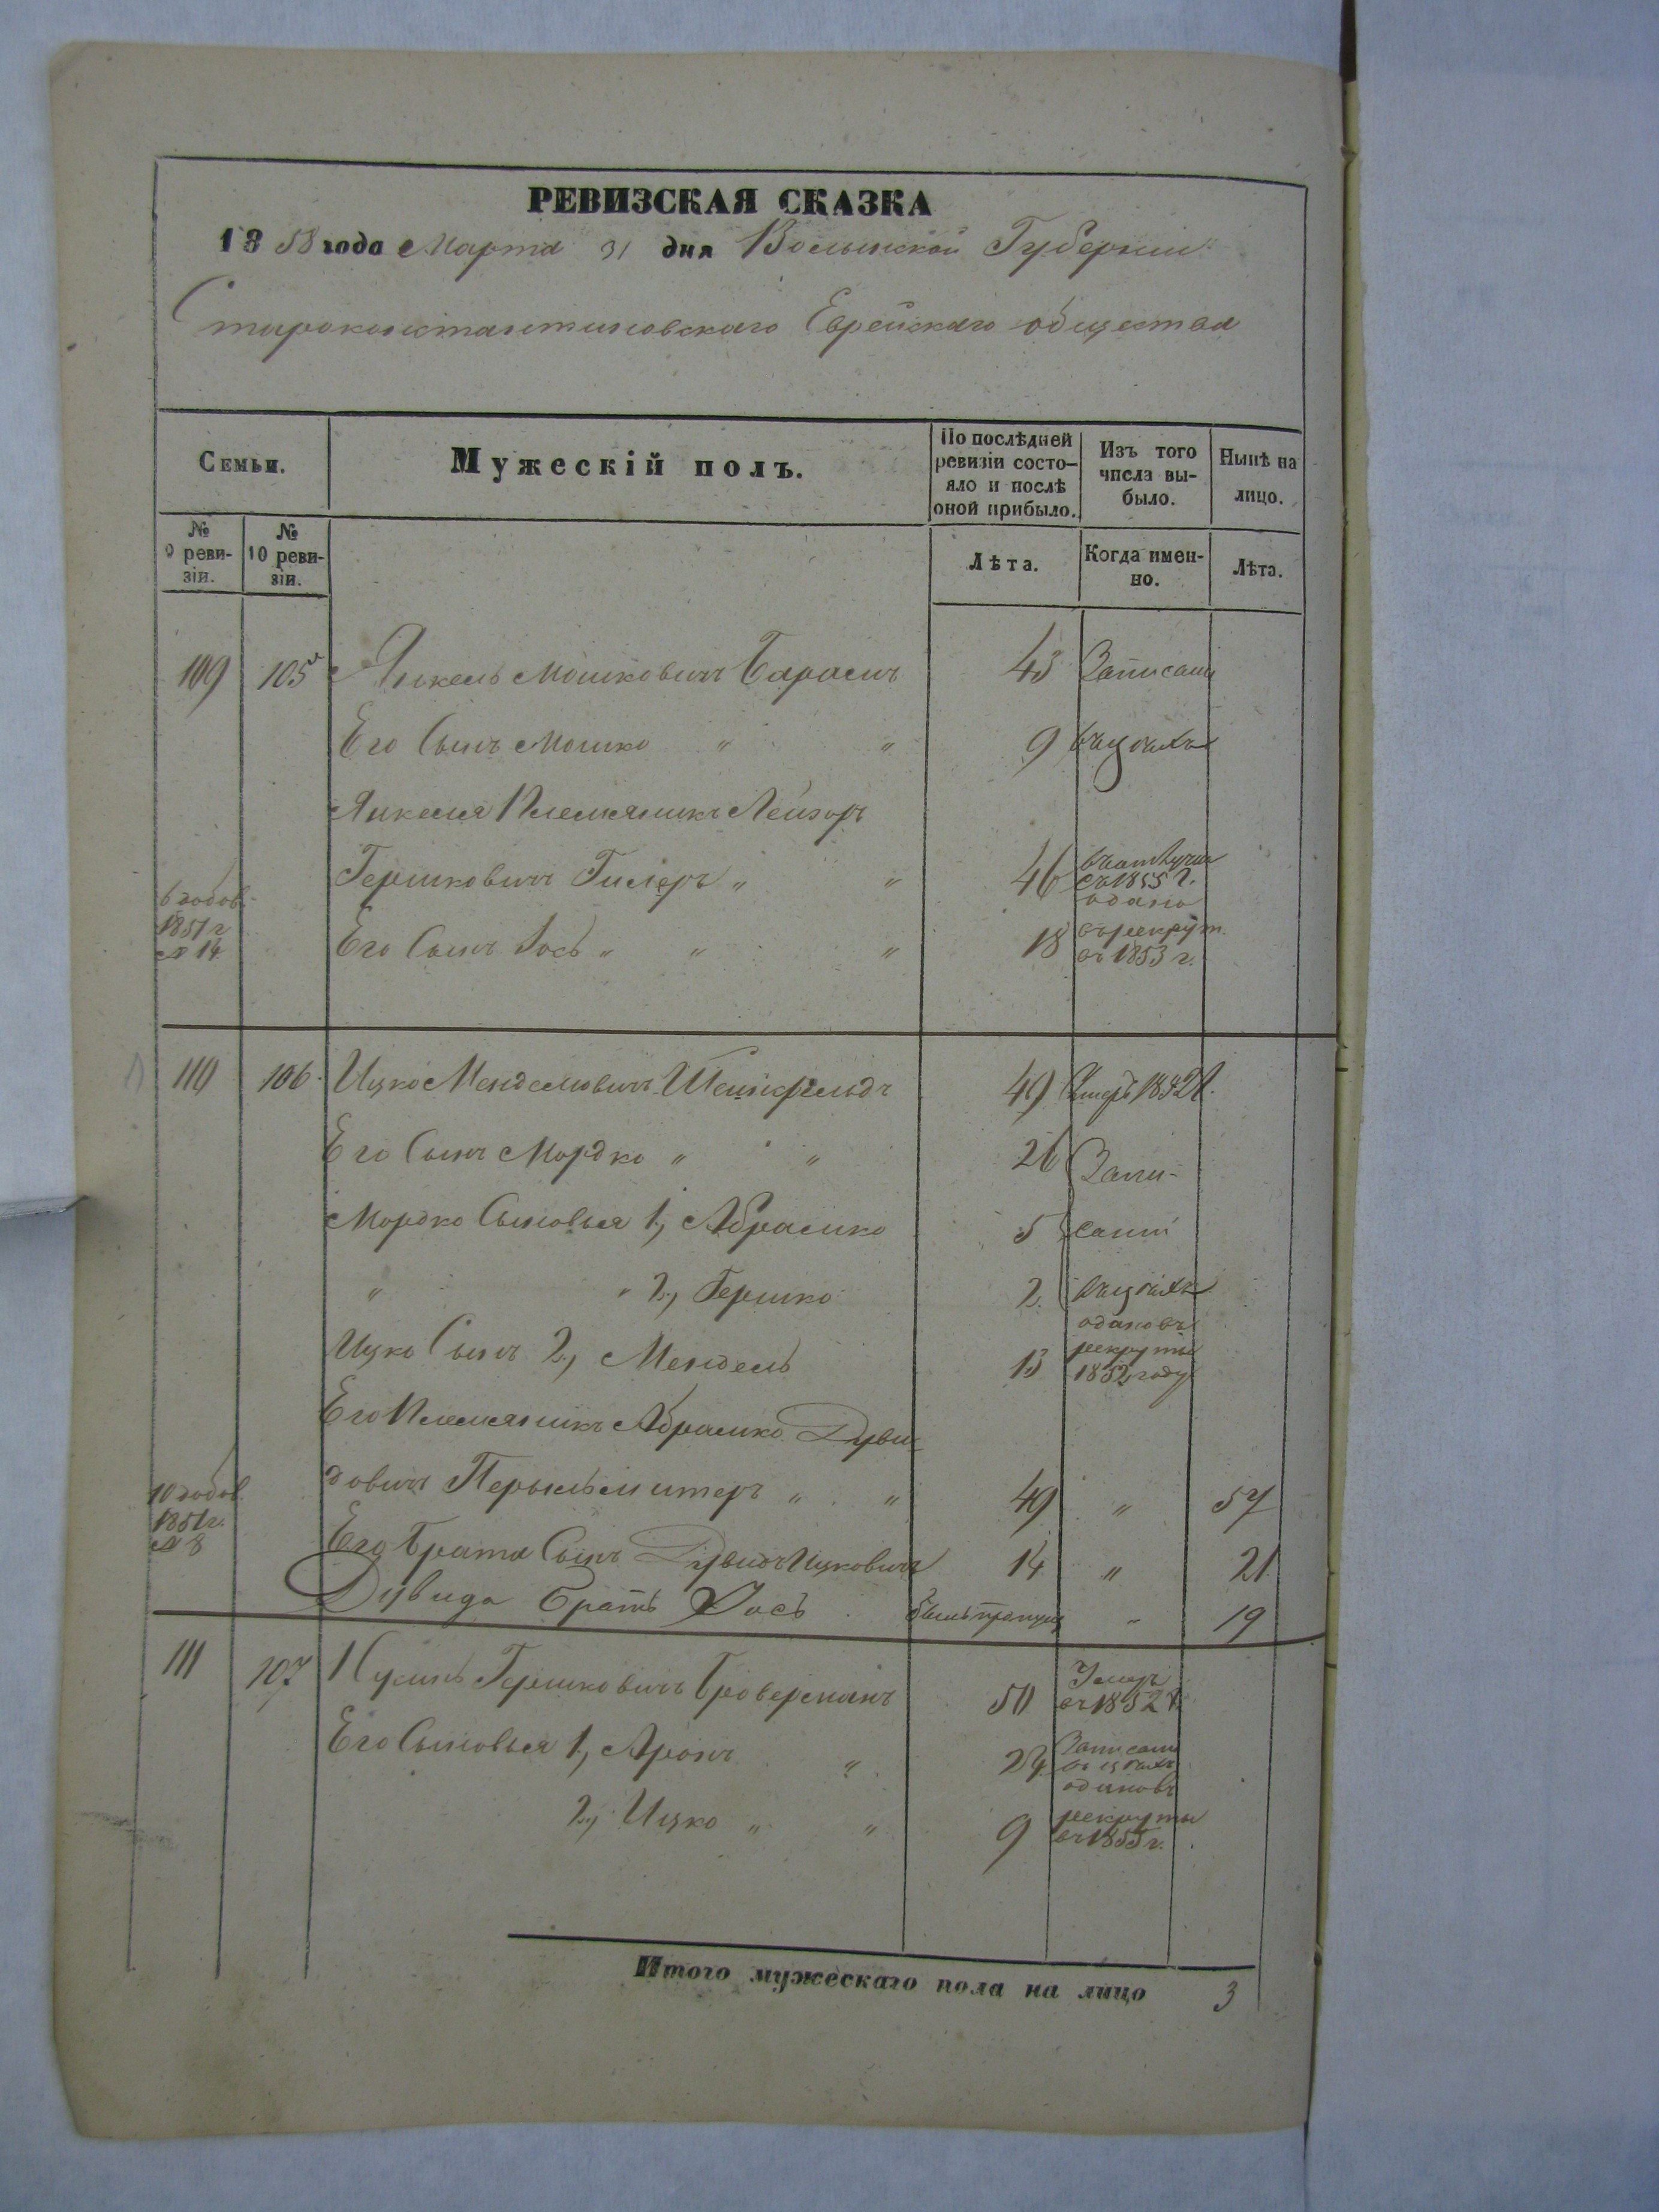 РЕВИЗСКАЯ СКАЗКА
1858 года Марта 31 дня Волынской Губернии
Староконстантиновскаго Еврейскаго общества
Семьи. Мужескій полъ. По послѣдней ревизіи состо-яло и послѣ оной прибыло. Изъ того числа вы-было. Нынѣ на лицо.
№ 9 реви-зіи. № 10 реви-зіи. Лѣта. Когда имен-но. Лѣта.
109 105 Янкель Мошковичъ 43 Записани
Его Сынъ Мошко " " 9 въ цехахъ
Янкеля Племяникъ Лейзоръ
Гершковичъ " " 46 въ 1855 г.
6 годов. 1851 г. № 14 Его Сынъ Іось " " " 18 одано въ рекрут. въ 1853 г.
110 106 Ицко Менделовичъ Штейнфельдъ 49 Умеръ 1852 г.
Его Сынъ Мордко " " 26 Запи-
Мордко Сыновья 1, Абрамко 5 сани
" " 2, Гершко 2 въ цехахъ
Ицко Сынъ 2, Мендель 13 одановъ рекруты 1852 году
Его Племяникъ Абрамко Дуви
довичъ " " 49 " 57
10 годов. 1851 г. № 8 Его Брата Сынъ Дувидъ Ицковичъ 14 " 21
Дувида Братъ Іось былъ пропущ " 19
111 107 Нухимъ Гершковичъ Броверманъ 50 Умеръ въ 1852 г.
Его Сыновья 1, Аронъ " 24 Записани въ цехахъ
2, Ицко " " 9 одановъ рекруты въ 1855 г.
Итого мужескаго пола на лицо 3